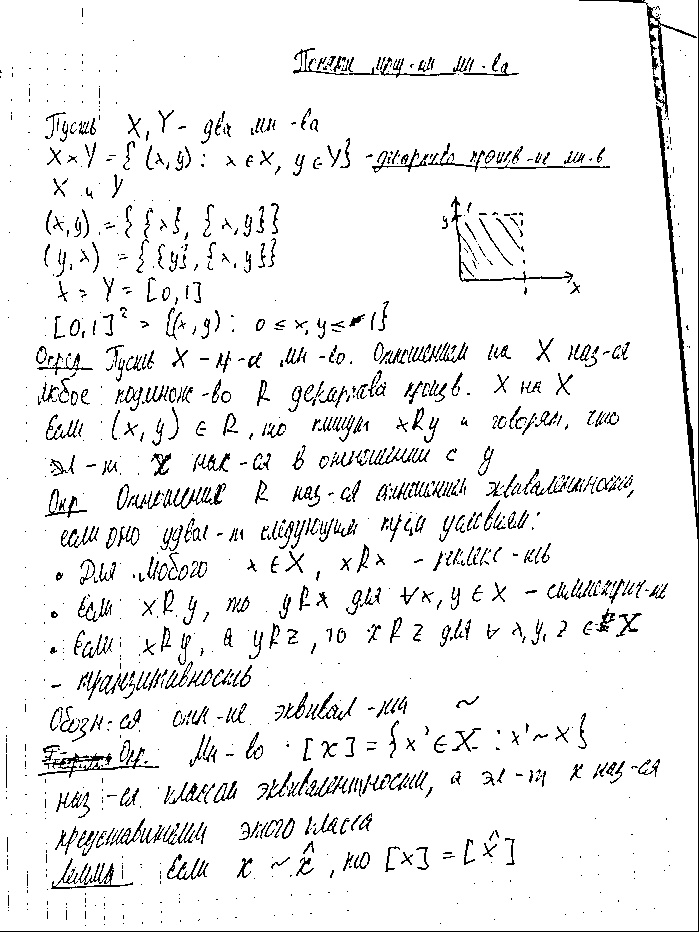 Поняти мощ-ти мн-ва
Пусть X, Y - два мн-ва
X×Y = { (x,y) : x ∈ X, y ∈ Y} - декартово произв-ие мн-в
X и Y
(x,y) = { {x}, {x,y}}
(y,x) = { {y}, {x,y}}
X = Y = [0,1]
[0,1]² = {(x,y) : 0 ≤ x,y ≤ 1}
y
x
Опред Пусть X - н-е мн-во. Отношением на X наз-ся
любое подмнож-во R декартова произв. X на X
Если (x,y) ∈ R, то пишут xRy и говорят, что
эл-т x нах-ся в отношении с y
Опр Отношение R наз-ся отношением эквивалентности,
если оно удвл-т следующим трем условиям:
• Для любого x ∈ X, xRx - рефлекс-ть
• Если xRy, то yRx для ∀x,y ∈ X - симметрич-ть
• Если xRy, а yRz, то xRz для ∀ x,y,z ∈ X
- транзитивность
Обозн-ся отн-ие эквивал-ти ~
Опр. Мн-во [x] = {x' ∈ X : x' ~ x}
наз-ся классом эквивалентности, а эл-т x наз-ся
представителем этого класса
Лемма Если x ~ x̂, то [x] = [x̂]